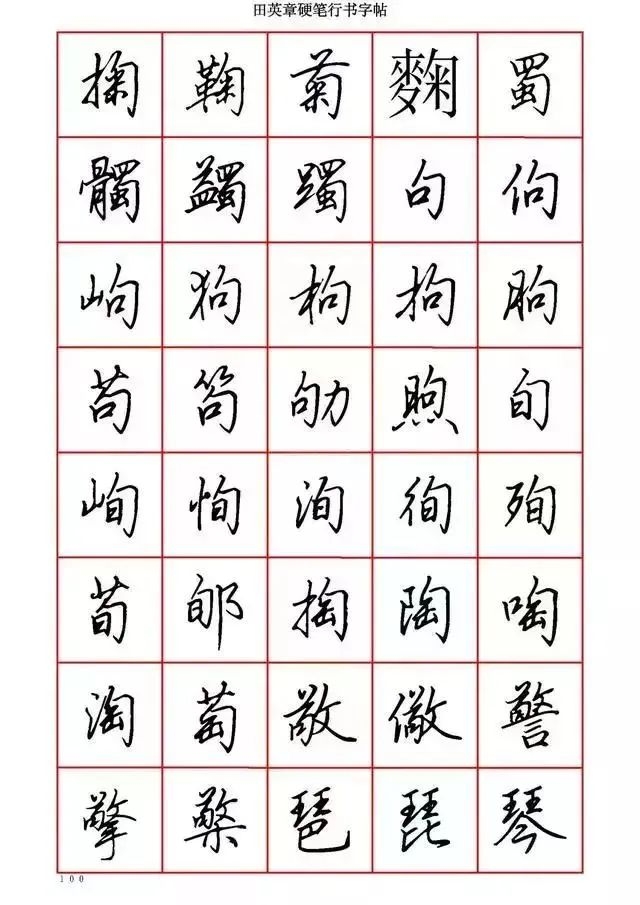 田英章硬笔行书字帖
掬 鞠 菊 麹 蜀
髑 蠲 躅 句 佝
岣 狗 枸 拘 朐
苟 笱 劬 煦 旬
峋 恂 洵 徇 殉
荀 郇 掏 陶 啕
淘 萄 敬 儆 警
擎 檠 琶 琵 琴
100